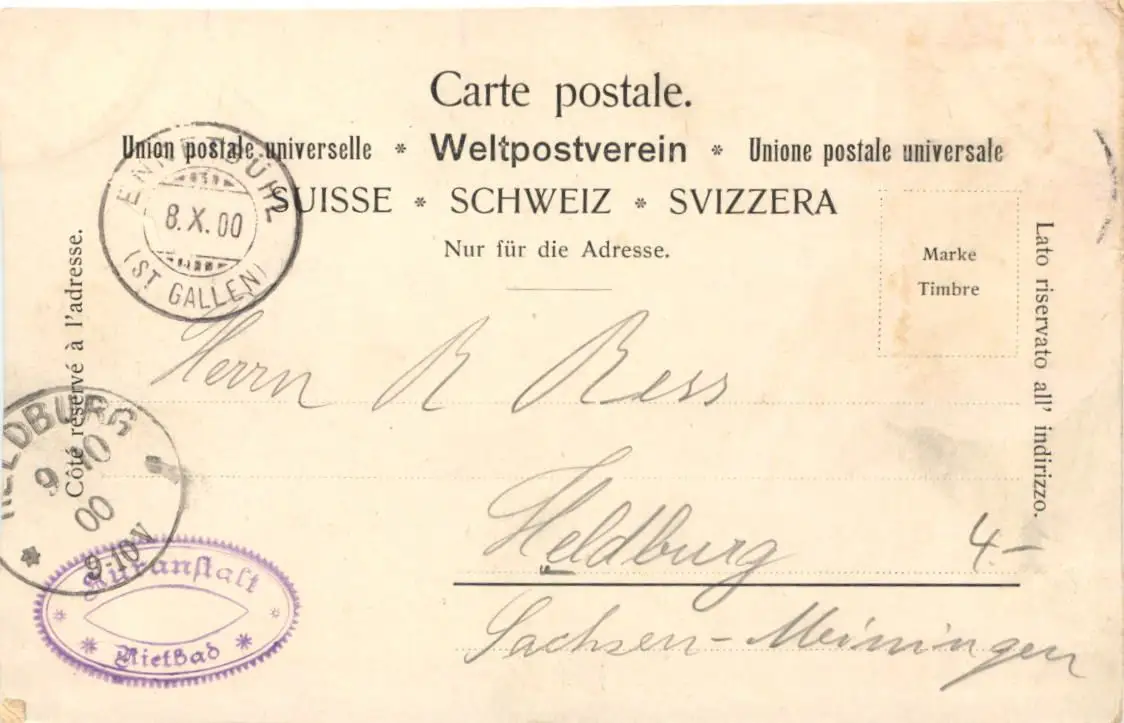 Carte postale.
Union postale universelle * Weltpostverein * Unione postale universale
SUISSE * SCHWEIZ * SVIZZERA
Nur für die Adresse.
Marke
Timbre
Côté réservé à l'adresse.
Lato riservato all' indirizzo.
ENNETBÜHL
8.X.00
(ST GALLEN)
Herrn R Ress
Heldburg
4.-
Sachsen-Meiningen
HELDBURG
9 10
00
9-10V
*
Kuranstalt
* *
* Rietbad *